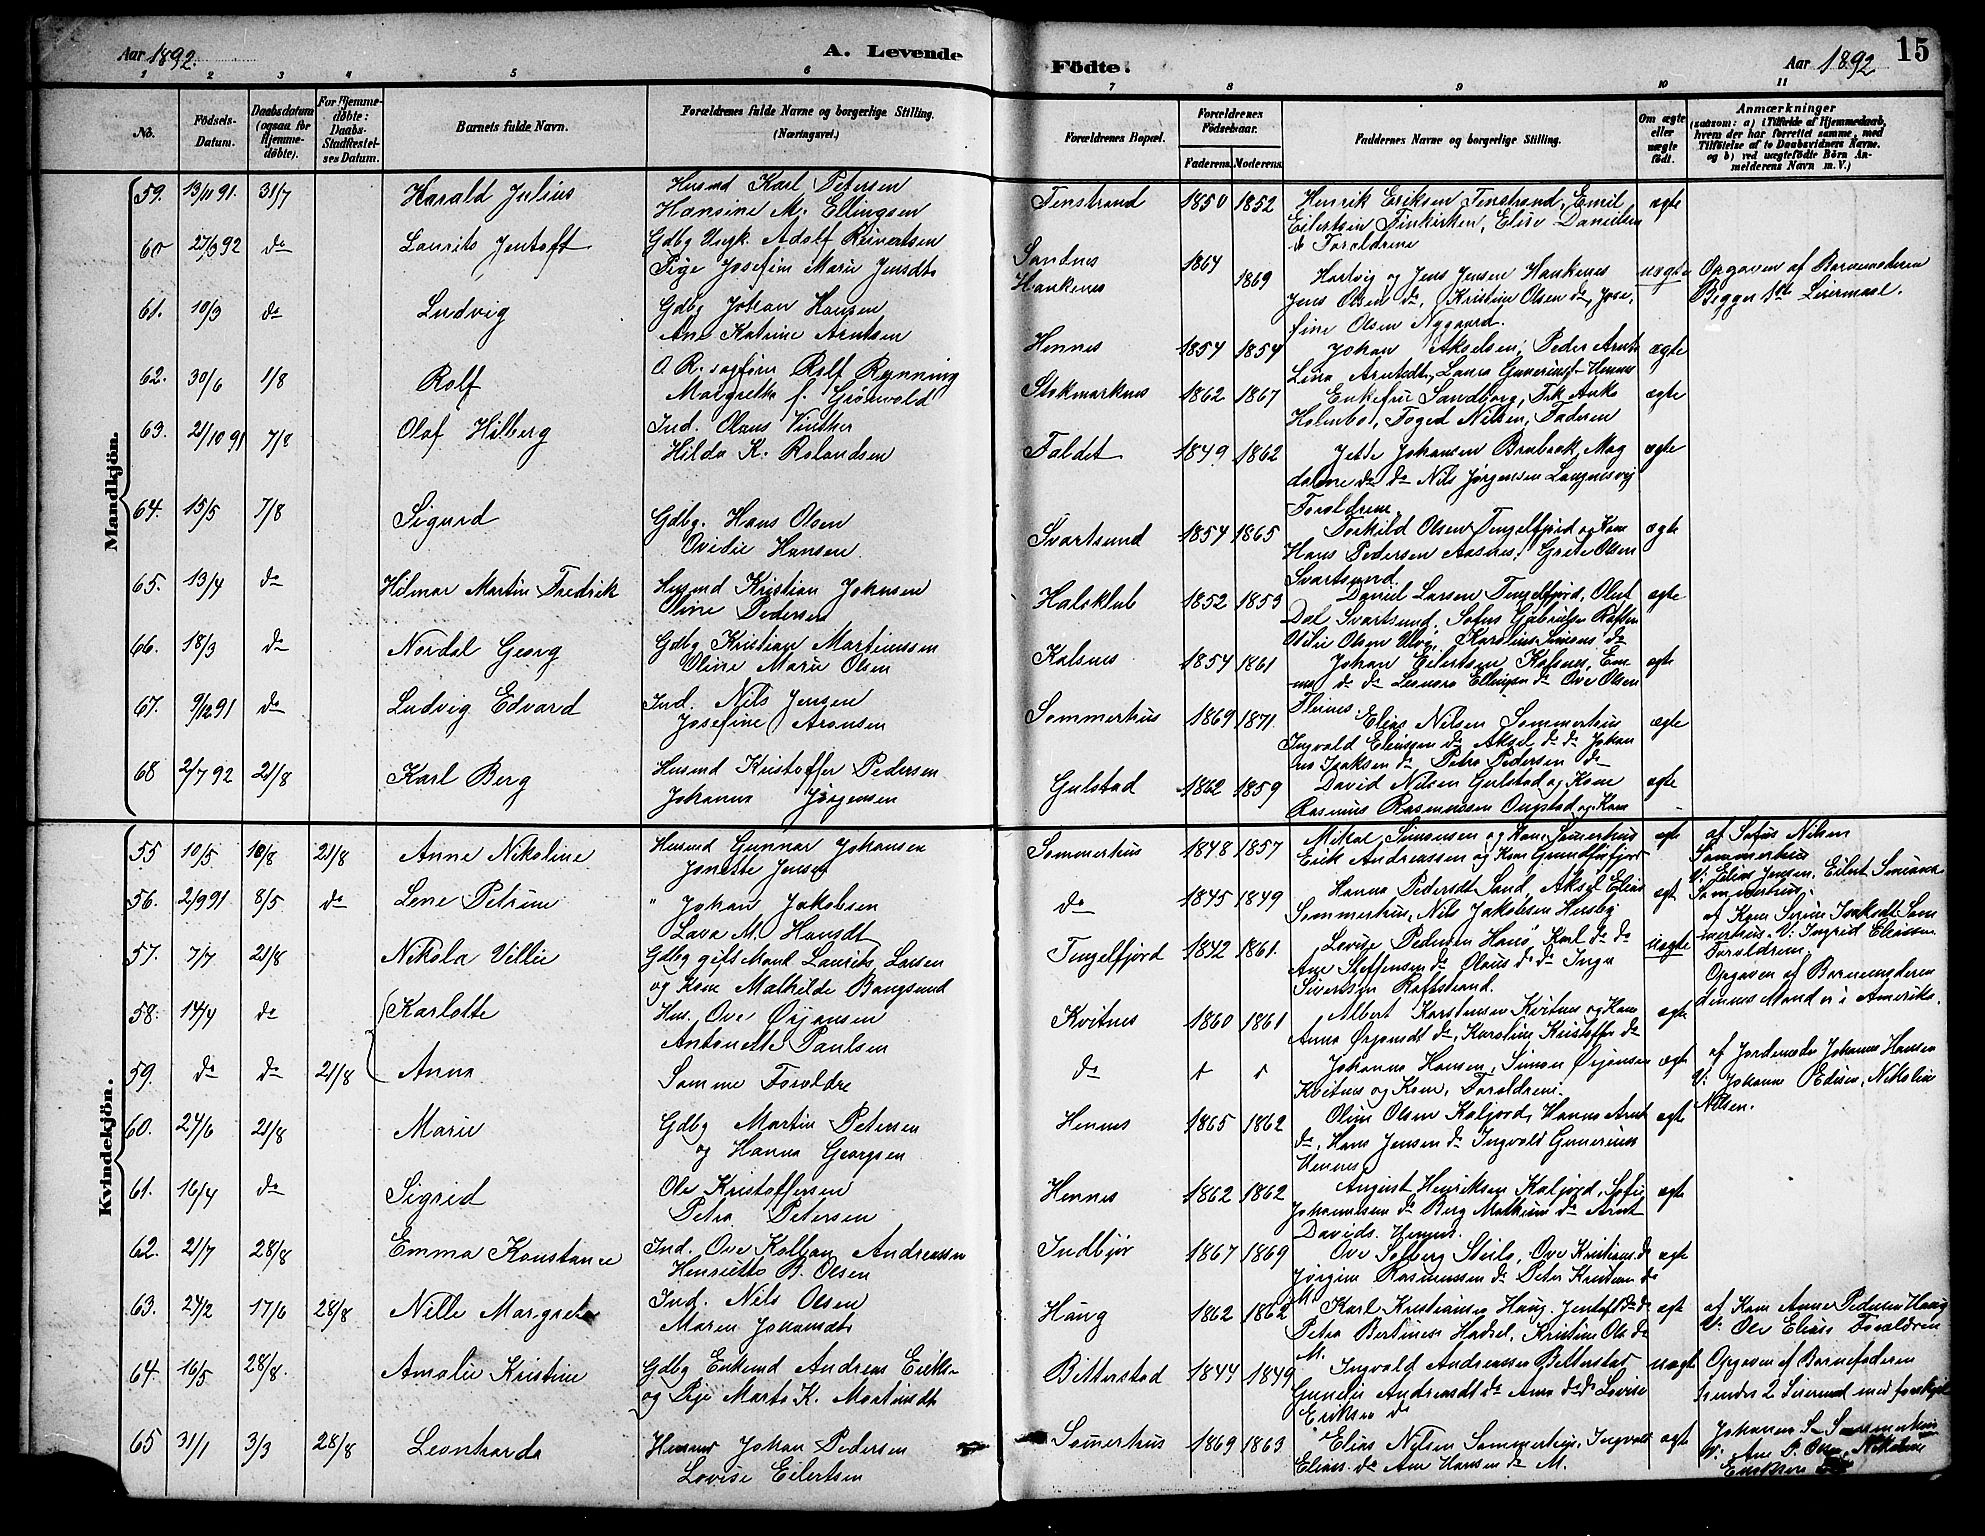 Aar 1892.
A. Levende
Födte.
Aar 1892
15
1 2 3 4 5 6 7 8 9 10 11
No.
Födsels-Datum.
Daabsdatum (ogsaa for Hjemme-døbte).
For Hjemme-døbte: Daabs-Stadfæstel-ses Datum.
Barnets fulde Navn.
Forældrenes fulde Navne og borgerlige Stilling. (Næringsvei.)
Forældrenes Bopæl.
Forældrenes Födselsaar.
Faderens. Moderens.
Faddernes Navne og borgerlige Stilling.
Om ægte eller uægte födt.
Anmærkninger
(saasom: a) i Tilfælde af Hjemmedaab, hvem der har forrettet samme, med Tilföielse af to Daabsvidners Navne. og b) ved uægtefödte Börn An-melderens Navn m. V.)
Mandkjön.
59. 13/11 91. 31/7 Harald Julius Husmd Karl Petersen
Hansine M. Ellingsen
Fenstrand 1850 1852 Henrik Eriksen Fenstrand, Emil
Eilertsen, Elise Danielsen
Forældrene ægte
60 27/3 92 do Laurits Jentoft Gdbg Ungk. Adolf Reinertsen
Pige Josefine Marie Jensdt
Sandnes 1864
Haukenes 1869 Hartvig og Jens Jensen Haukenes
Jens Olsen do, Kristine Olsen do, Jose-
fine Olsen Nygaard. uægte Opgaven af Barnemoderen
Begges 1ste Leiermaal.
61. 10/3 do Ludvig Gdbg Johan Hansen
Ane Katrine Arntsen
Hennes 1854 1854 Johan Akselsen, Peder Arnts
Lina Arntsdt, Laura Hennes ægte
62. 30/6 1/8 Rolf O. R. sagfører Rolf Rynning
Margrethe f. Grønvold
Stokmarknes 1862 1867 Enkefru Sandborg, Frk Anka
Holmboe, Foged Nilsen, Faderen ægte
63. 21/10 91 7/8 Olaf Hilberg Ind. Olaus Vinther
Hilda K. Rolandsen
Faldet 1849 1862 Jette Johansen, Mag
dalene do do Nils Jørgensen
Forældrene ægte
64. 15/5 7/8 Sigurd Gdbg. Hans Olsen
Ovidie Hansen
Svartsund 1854 1865 Torkild Olsen Tengelfjord og Kone
Hans Pedersen Aasnes, Grete Olsen
Svartsund. ægte
65. 13/4 do Hilmar Martin Fredrik Husmd Kristian Johnsen
Oline Pedersen
1852 1853 Daniel Larsen Tengelfjord, Olut
Dal Svartsund, Sofus Gabrielsen Raften
Otilie Olsen Ulvøy, Karolius Simons do ægte
66. 18/3 do Nordal Georg Gdbg Kristian Martinussen
Oline Marie Olsen
Kalsnes 1854 1861 Johan Eilertsen Kalsnes, Em-
ma do do Leonora Ellingsen do Ove Olsen
Flesnes ægte
67. 9/12 91 do Ludvig Edvard Ind. Nils Jensen
Josefine Aronsen
Sommerhus 1869 1871 Elias Nilsen Sommerhus
Ingvald Eliassen do Aksel do do Johan
Isaksen do, Petra Pedersen do ægte
68 2/7 92 21/8 Karl Berg Husmd Kristoffer Pedersen
Johanna Jørgensen
Gulstad 1862 1859 David Nilsen Gulstad og Kone
Rasmus Rasmussen Ongstad og Kone ægte
Kvindekjön.
55 10/5 10/8 21/8 Anne Nikoline Husmd Gunnar Johansen
Jonette Jensen
Sommerhus 1848 1857 Mikal Simonsen og Kone Sommerhus
Erik Andreassen og Kone Grundførfjord ægte af Sofus Nilsen
Sommerhus
V: Elias Jensen, Eilert Simonsen
Sommerhus.
56. 2/9 91 8/5 do Lene Petrine " Johan Jakobsen
Lava M. Hansdt
do 1845 1849 Hanna Pedersdt Sand, Aksel Elias
Sommerhus, Nils Jakobsen ægte af Kone Sirine Isaksdt Som
merhus. V: Ingrid Eliassen
Forældrene
57. 7/7 21/8 Nikola Villie Gdbg gift Mand Laurits Larsen
og Kone Mathilde Bangsund
Tengelfjord 1842 1861. Lovise Pedersen Hanø, Karl do do
Ane Steffensen do Olaus do do Inga
Sivertsen Raftstrand. uægte Opgaven af Barnemoderen
hennes Mand er i Amerika.
58. 14/4 do Karlotte Hus. Ove Ørjansen
Antonette Paulsen
Kvitnes 1860 1861 Albert Karstensen Kvitnes og Kone
Anna Ørjansdt do, Karoline Kristoffer do ægte
59. do do 21/8 Anna Samme Foræeldre
do Johanna Hansen, Simon Ørjansen
Kvitnes og Kone, Forældrene. ægte af Jordemoder Johanna Hansen
V: Johanna Edisen, Nikoline
Nilsen.
60. 27/6 21/8 Marie Gdbg Martin Petersen
og Hanna Georgsen
Hennes 1865 1862 Oline Olsen Kaljord, Hanna Arnt
do, Hans Jensen do Ingvald Gunerius
Hennes ægte
61. 16/4 do Sigrid Ole Kristoffersen
Petra Petersen
Hennes 1862 1862 August Henriksen Kaljord, Sofie
Johannesen do Berg Mathias do Arnt
Davids. Hennes. ægte
62. 21/7 28/8 Emma Konstance Ind. Ove Kolban Andreassen
Henriette B. Olsen
Indbjør 1867 1869 Ove Solberg Steilo, Ove Kristians. do
Jørgine Rasmussen do Peter Kristian do
M. ægte
63. 24/2 17/6 28/8 Nille Margrete Ind. Nils Olsen
Maren Johansdt
Haug 1862 1862 Karl Kristiansen Haug. Jentoft do do
Petra Bertinus Hadsel, Kristine Ols do
M. ægte af Kone Anne Pedersen Haug
V: Ole Elias Forældren
64. 16/5 28/8. Amalie Kristine Gdbg Enkemd Andreas Eriks-
og Pige Marta K. Mortensdt
Bitterstad 1844 1849 Ingvald Andreassen Bitterstad
Gunelie Andreasdt do Ane do do Lovise
Eriksen do uægte Opgaven af Barnefaderen
hendes 2 Leiermaal med forskjel
65 31/1 3/3 28/8 Leonharda Husmd Johan Pedersen
Lovise Eilertsen
Sommerhus 1869 1863 Elias Nilsen Sommerhus, Ingvald
Elias. do Ane Hansen do M. ægte Johannes S Sommerhus
V: Ane P. Olsen, Nikoline
Eriksen